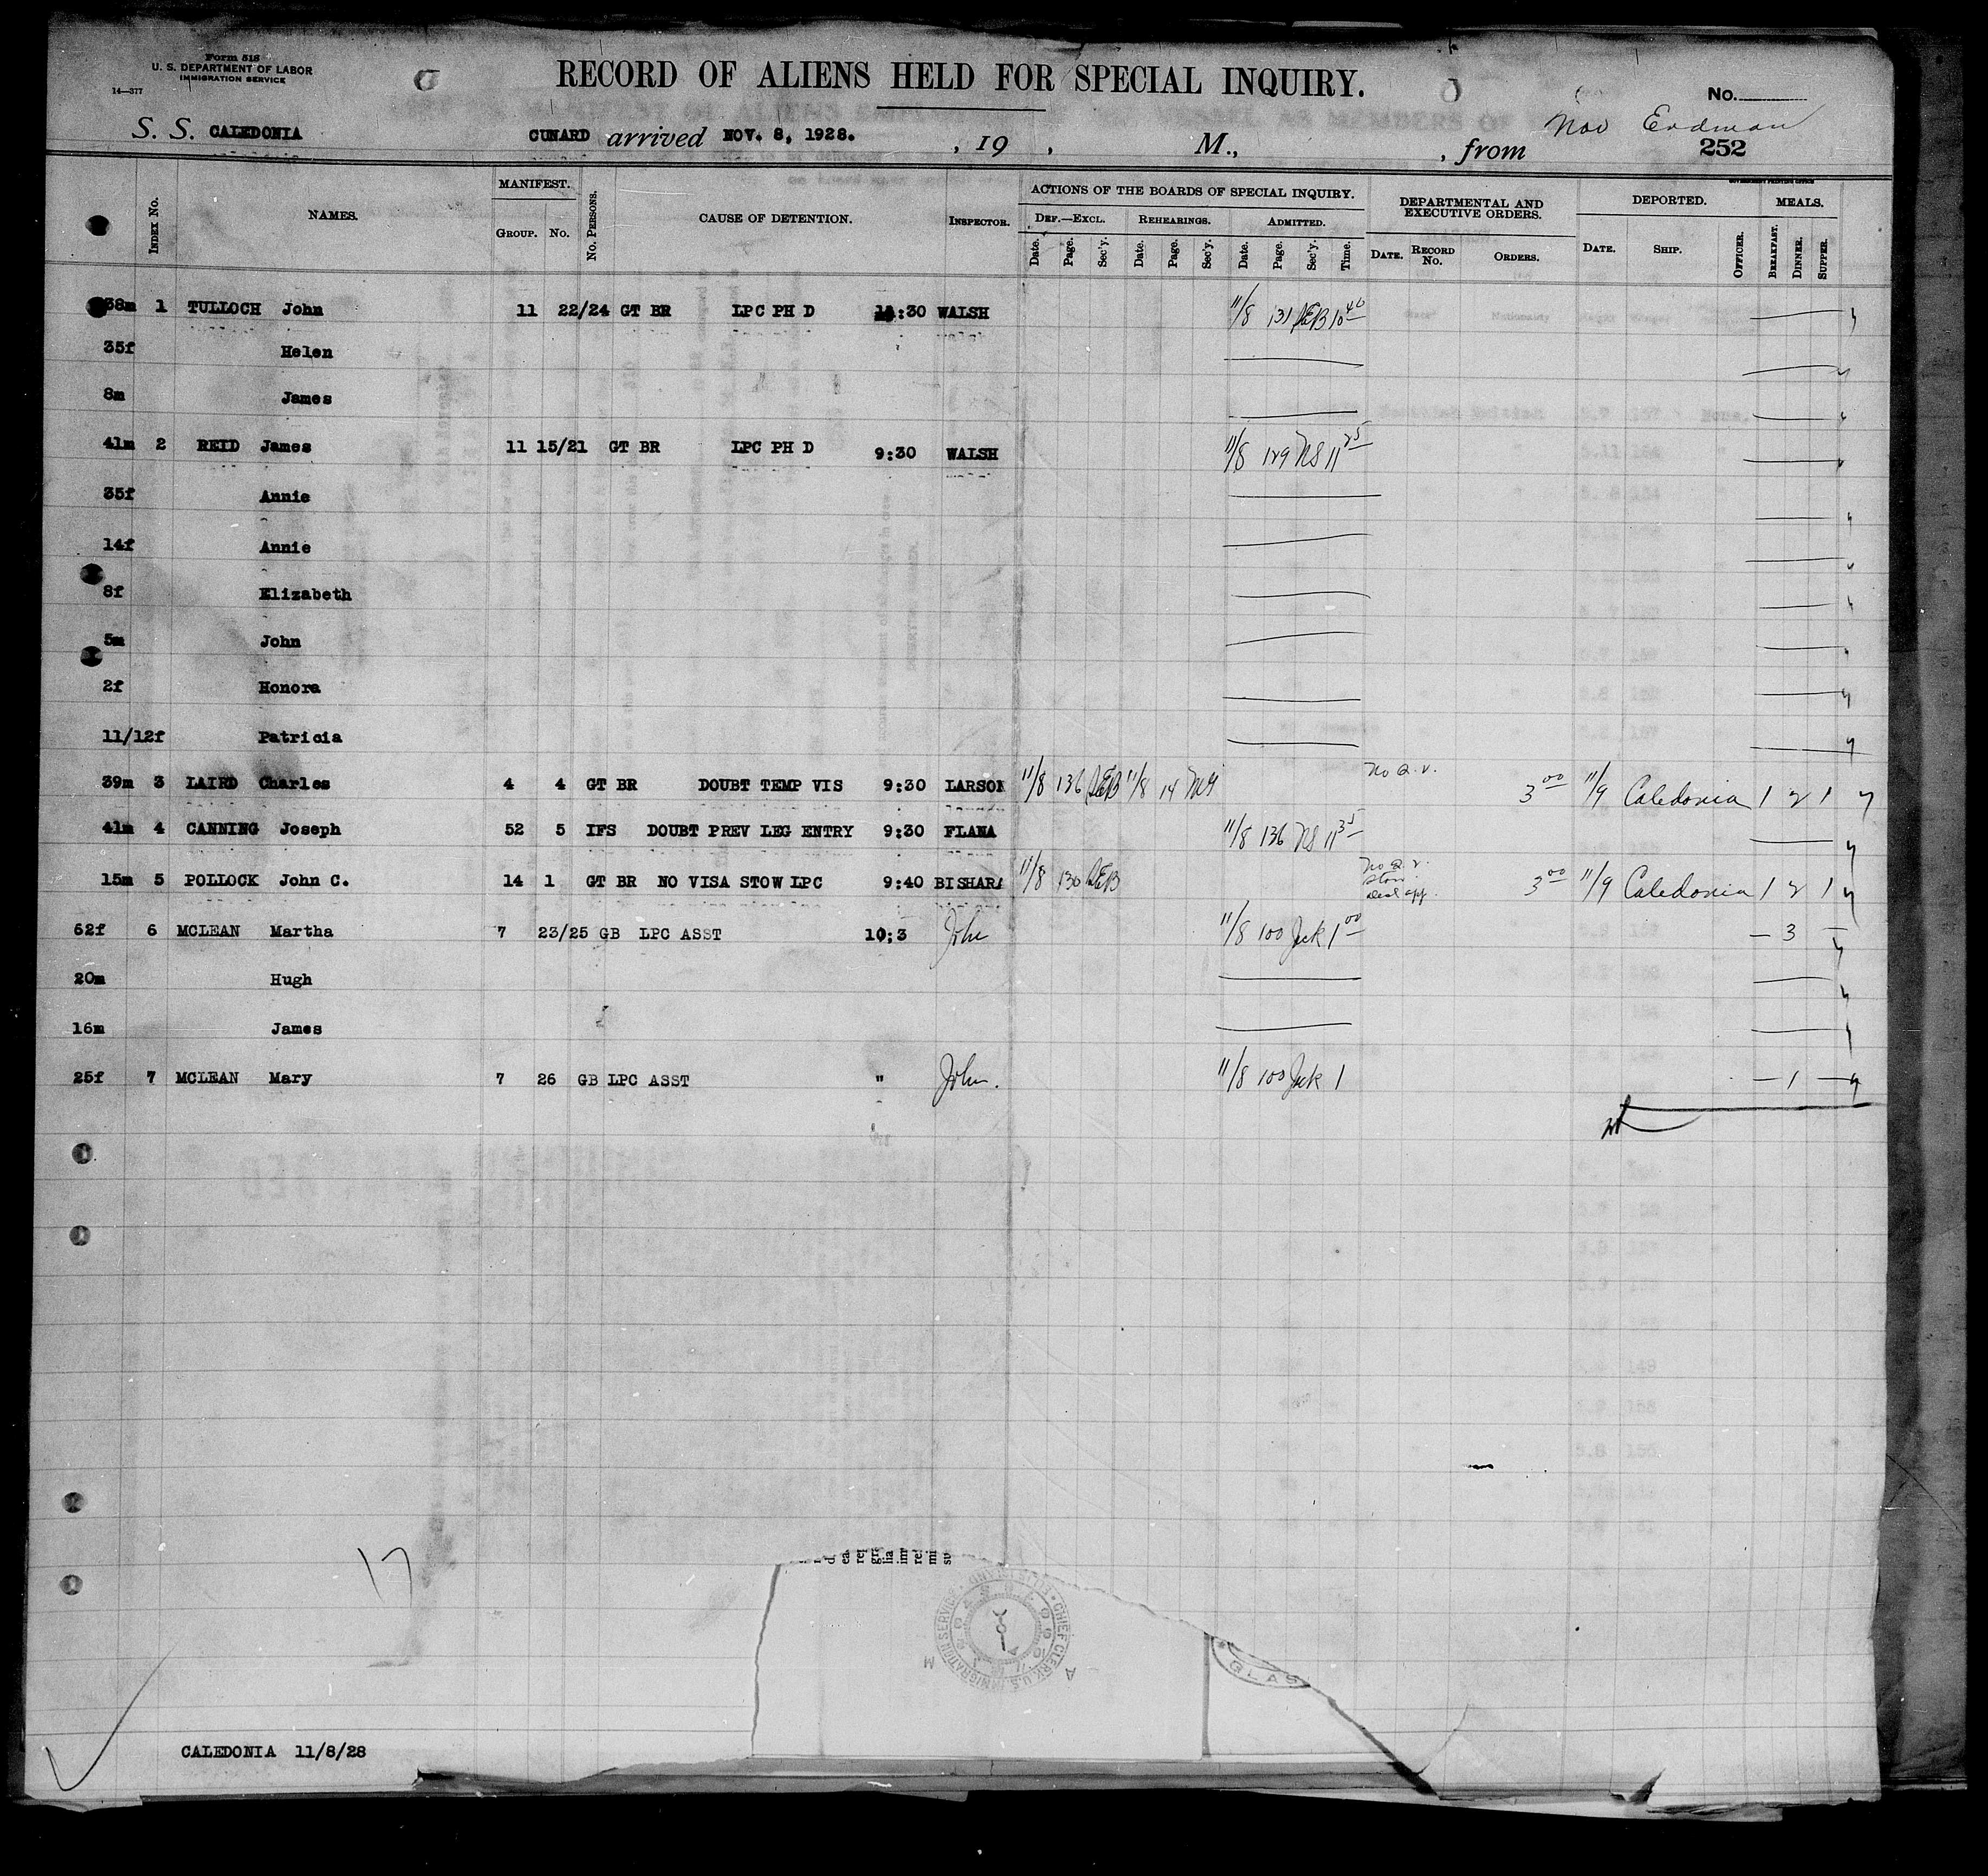 Form 518
U. S. DEPARTMENT OF LABOR
IMMIGRATION SERVICE
14—377
RECORD OF ALIENS HELD FOR SPECIAL INQUIRY.
No.
S. S. CALEDONIA CUNARD arrived NOV. 8, 1928. , 19 , M., , from
Erdman
252
INDEX No. NAMES. MANIFEST. GROUP. No. No. PERSONS. CAUSE OF DETENTION. INSPECTOR.
ACTIONS OF THE BOARDS OF SPECIAL INQUIRY. DEF.—EXCL. REHEARINGS. ADMITTED.
Date. Page. Sec'y. Date. Page. Sec'y. Date. Page. Sec'y. Time.
DEPARTMENTAL AND EXECUTIVE ORDERS. DATE. RECORD No. ORDERS.
DEPORTED. DATE. SHIP. OFFICER.
MEALS. BREAKFAST. DINNER. SUPPER.
38m 1 TULLOCH John 11 22/24 GT BR LPC PH D :30 WALSH 11/8 131 10 40
35f Helen
8m James
41m 2 REID James 11 15/21 GT BR LPC PH D 9:30 WALSH 11/8 129 NS 11 25
35f Annie
14f Annie
8f Elizabeth
5m John
2f Honora
11/12f Patricia
39m 3 LAIRD Charles 4 4 GT BR DOUBT TEMP VIS 9:30 LARSON 11/8 136 11/8 14 No Q.V. 3 00 11/9 Caledonia 1 2 1
41m 4 CANNING Joseph 52 5 IFS DOUBT PREV LEG ENTRY 9:30 FLANA 11/8 136 NS 11 35
15m 5 POLLOCK John C. 14 1 GT BR NO VISA STOW LPC 9:40 BISHARA 11/8 130 No Q.V. Stow. 3 00 11/9 Caledonia 1 2 1
62f 6 MCLEAN Martha 7 23/25 GB LPC ASST 10:3 John 11/8 100 1 00 3
20m Hugh
16m James
25f 7 MCLEAN Mary 7 26 GB LPC ASST " John. 11/8 100 1 1
17
CHIEF CLERK U.S. IMMIGRATION SERVICE
GLAS
CALEDONIA 11/8/28